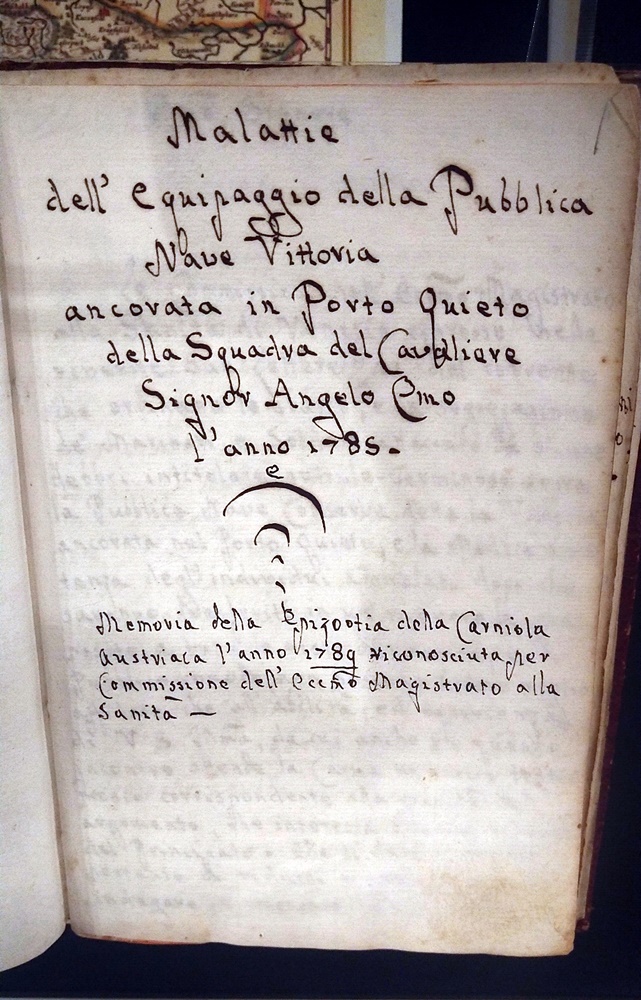 Malattie
dell' equipaggio della Pubblica
Nave Vittoria
ancorata in Porto Quieto
della Squadra del Cavaliere
Signor Angelo Emo
l'anno 1785.
e
Memoria della Epizootia della Carniola
Austriaca l'anno 1789 riconosciuta per
Commissione dell' eccmo Magistrato alla
Sanità —